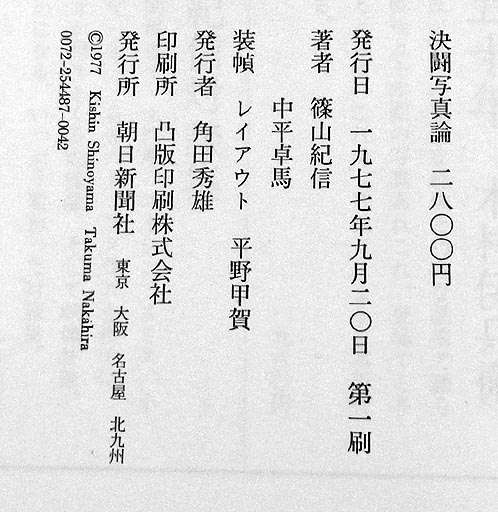 決闘写真論　二八〇〇円
発行日　一九七七年九月二〇日　第一刷
著者　篠山紀信
中平卓馬
装幀　レイアウト　平野甲賀
発行者　角田秀雄
印刷所　凸版印刷株式会社
発行所　朝日新聞社　東京　大阪　名古屋　北九州
©1977　Kishin Shinoyama　Takuma Nakahira
0072-254487-0042